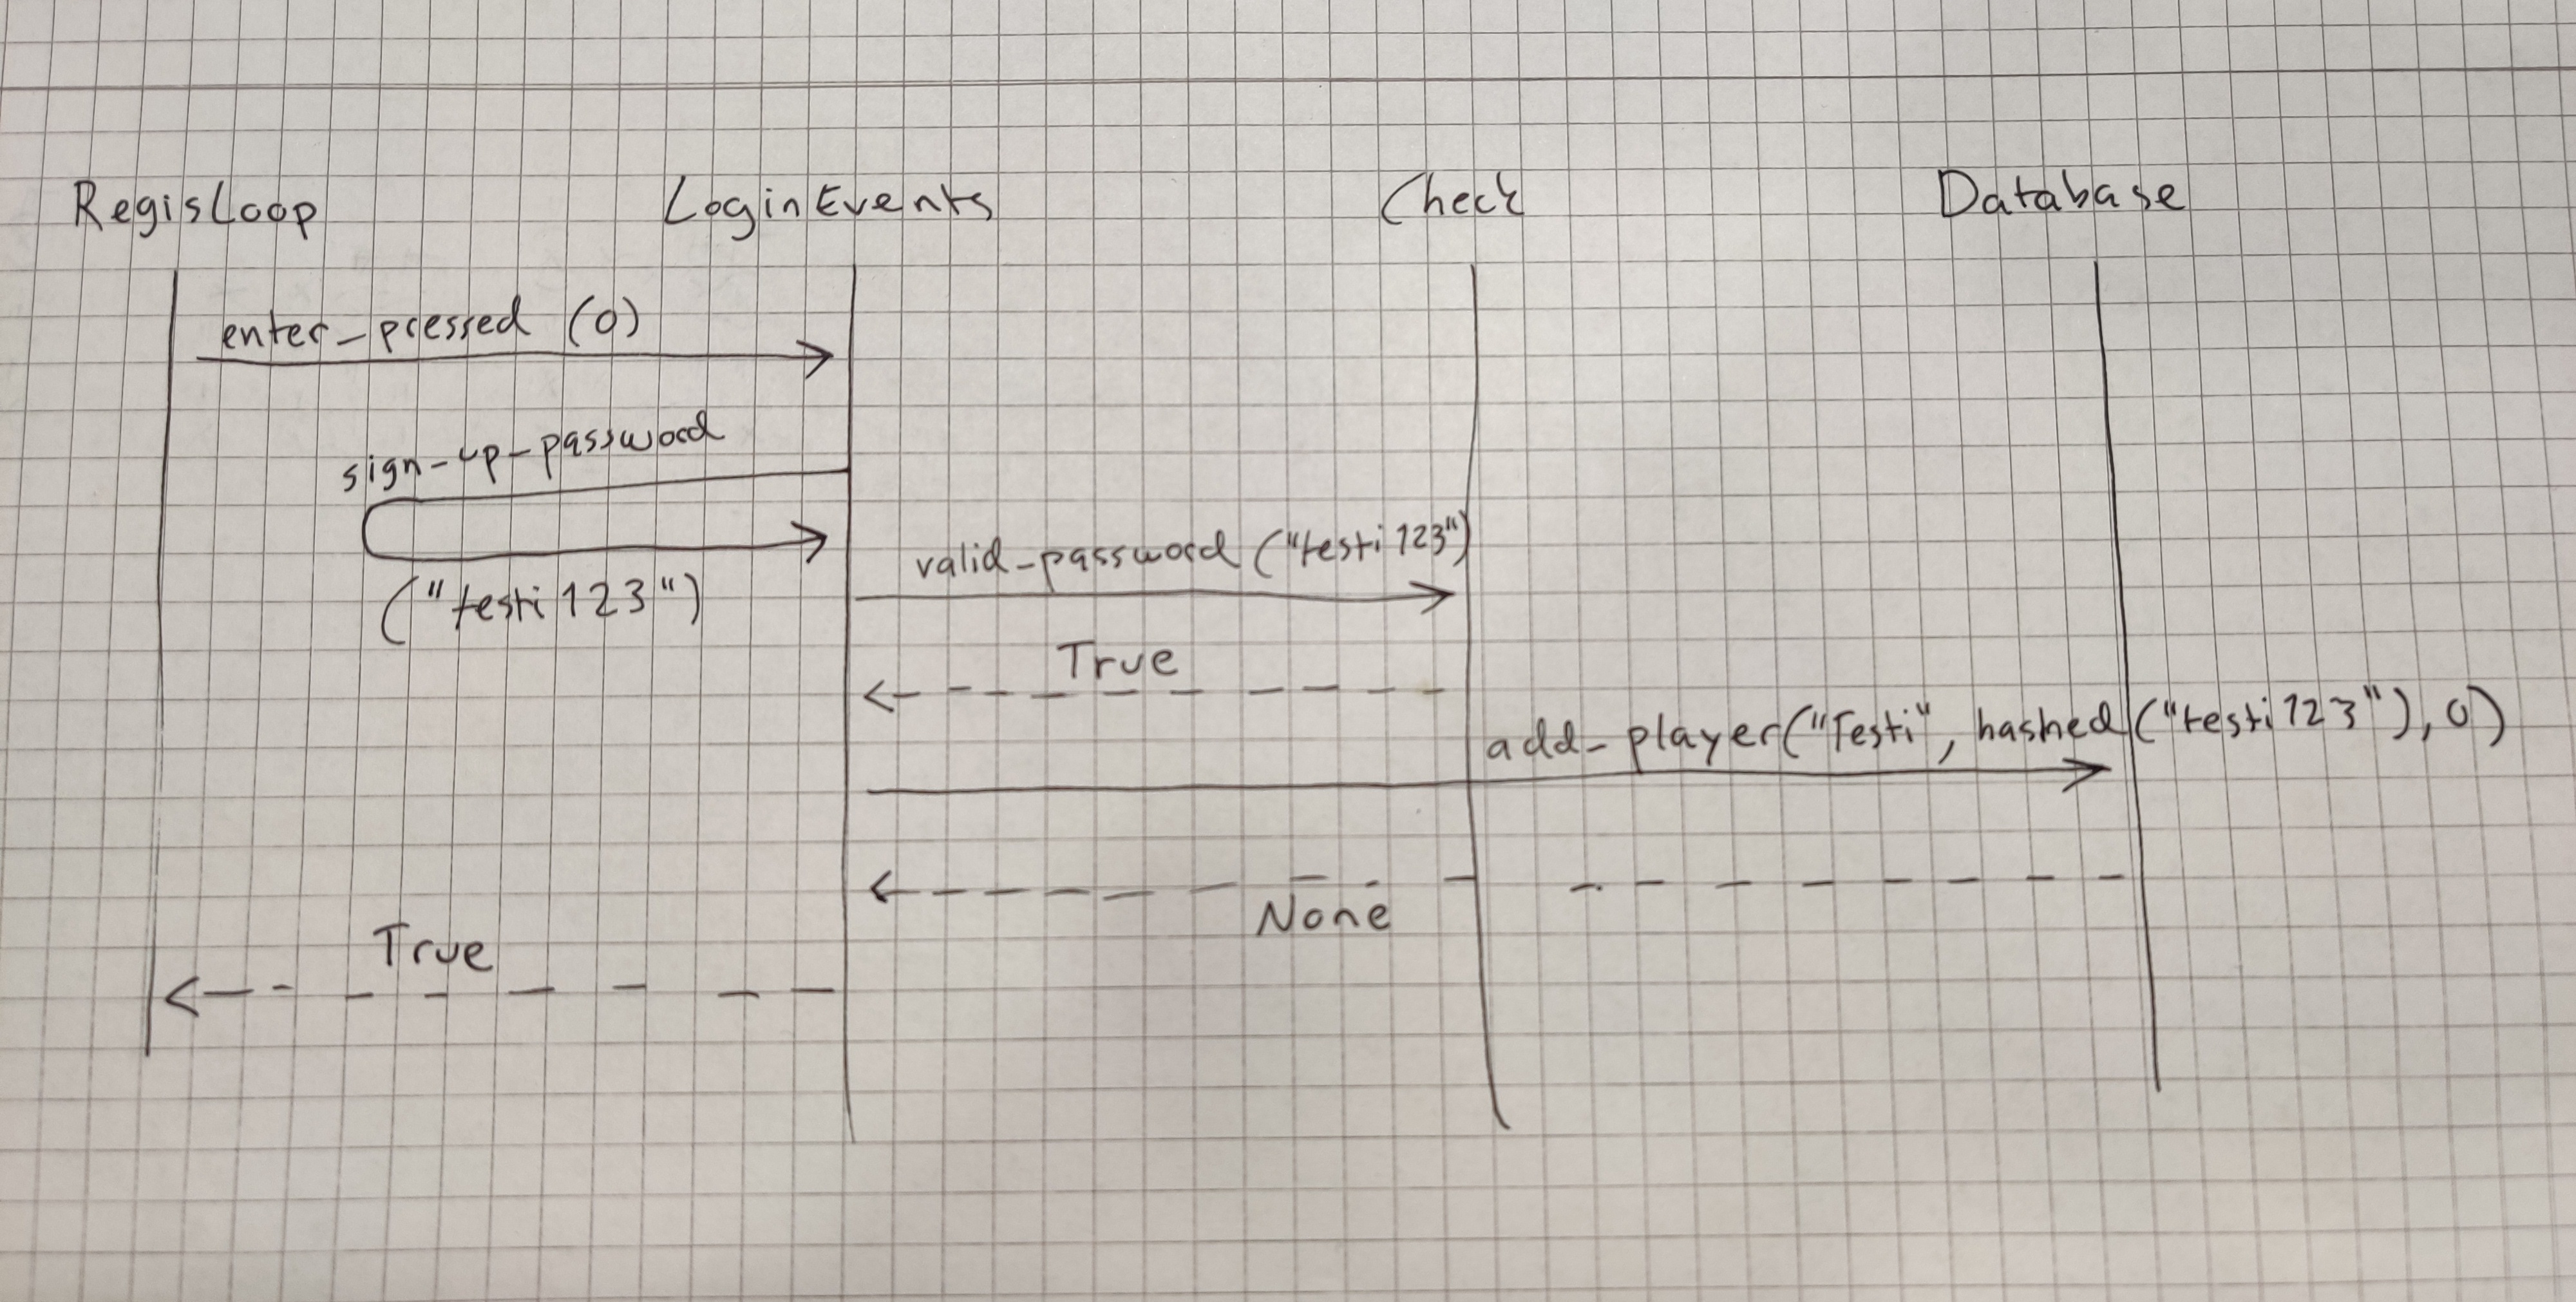 RegisLoop LoginEvents Check Database
enter_pressed (0)
sign_up_password
("testi123")
valid_password ("testi123")
True
add_player("Testi", hashed ("testi123"), 0)
None
True